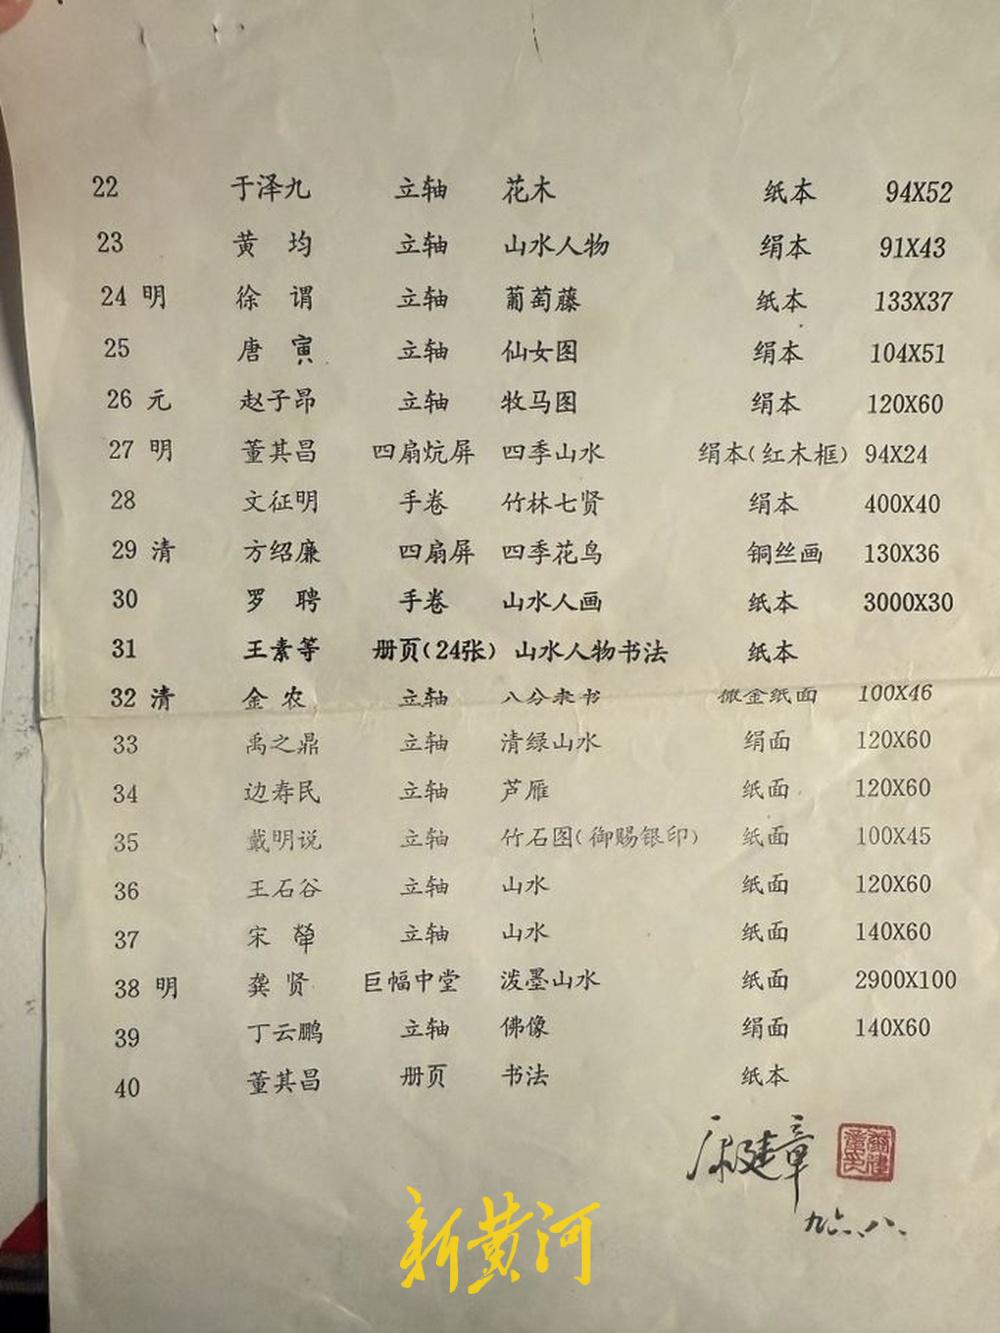 22 于泽九 立轴 花木 纸本 94X52
23 黄 均 立轴 山水人物 绢本 91X43
24 明 徐 谓 立轴 葡萄藤 纸本 133X37
25 唐 寅 立轴 仙女图 绢本 104X51
26 元 赵子昂 立轴 牧马图 绢本 120X60
27 明 董其昌 四扇炕屏 四季山水 绢本(红木框) 94X24
28 文征明 手卷 竹林七贤 绢本 400X40
29 清 方绍廉 四扇屏 四季花鸟 铜丝画 130X36
30 罗 聘 手卷 山水人画 纸本 3000X30
31 王素等 册页(24张) 山水人物书法 纸本
32 清 金 农 立轴 八分隶书 纸面 100X46
33 禹之鼎 立轴 清绿山水 绢面 120X60
34 边寿民 立轴 芦雁 纸面 120X60
35 戴明说 立轴 竹石图(御赐银印) 纸面 100X45
36 王石谷 立轴 山水 纸面 120X60
37 宋 立轴 山水 纸面 140X60
38 明 龚 贤 巨幅中堂 泼墨山水 纸面 2900X100
39 丁云鹏 立轴 佛像 绢面 140X60
40 董其昌 册页 书法 纸本
建章
九六、八、
新黄河